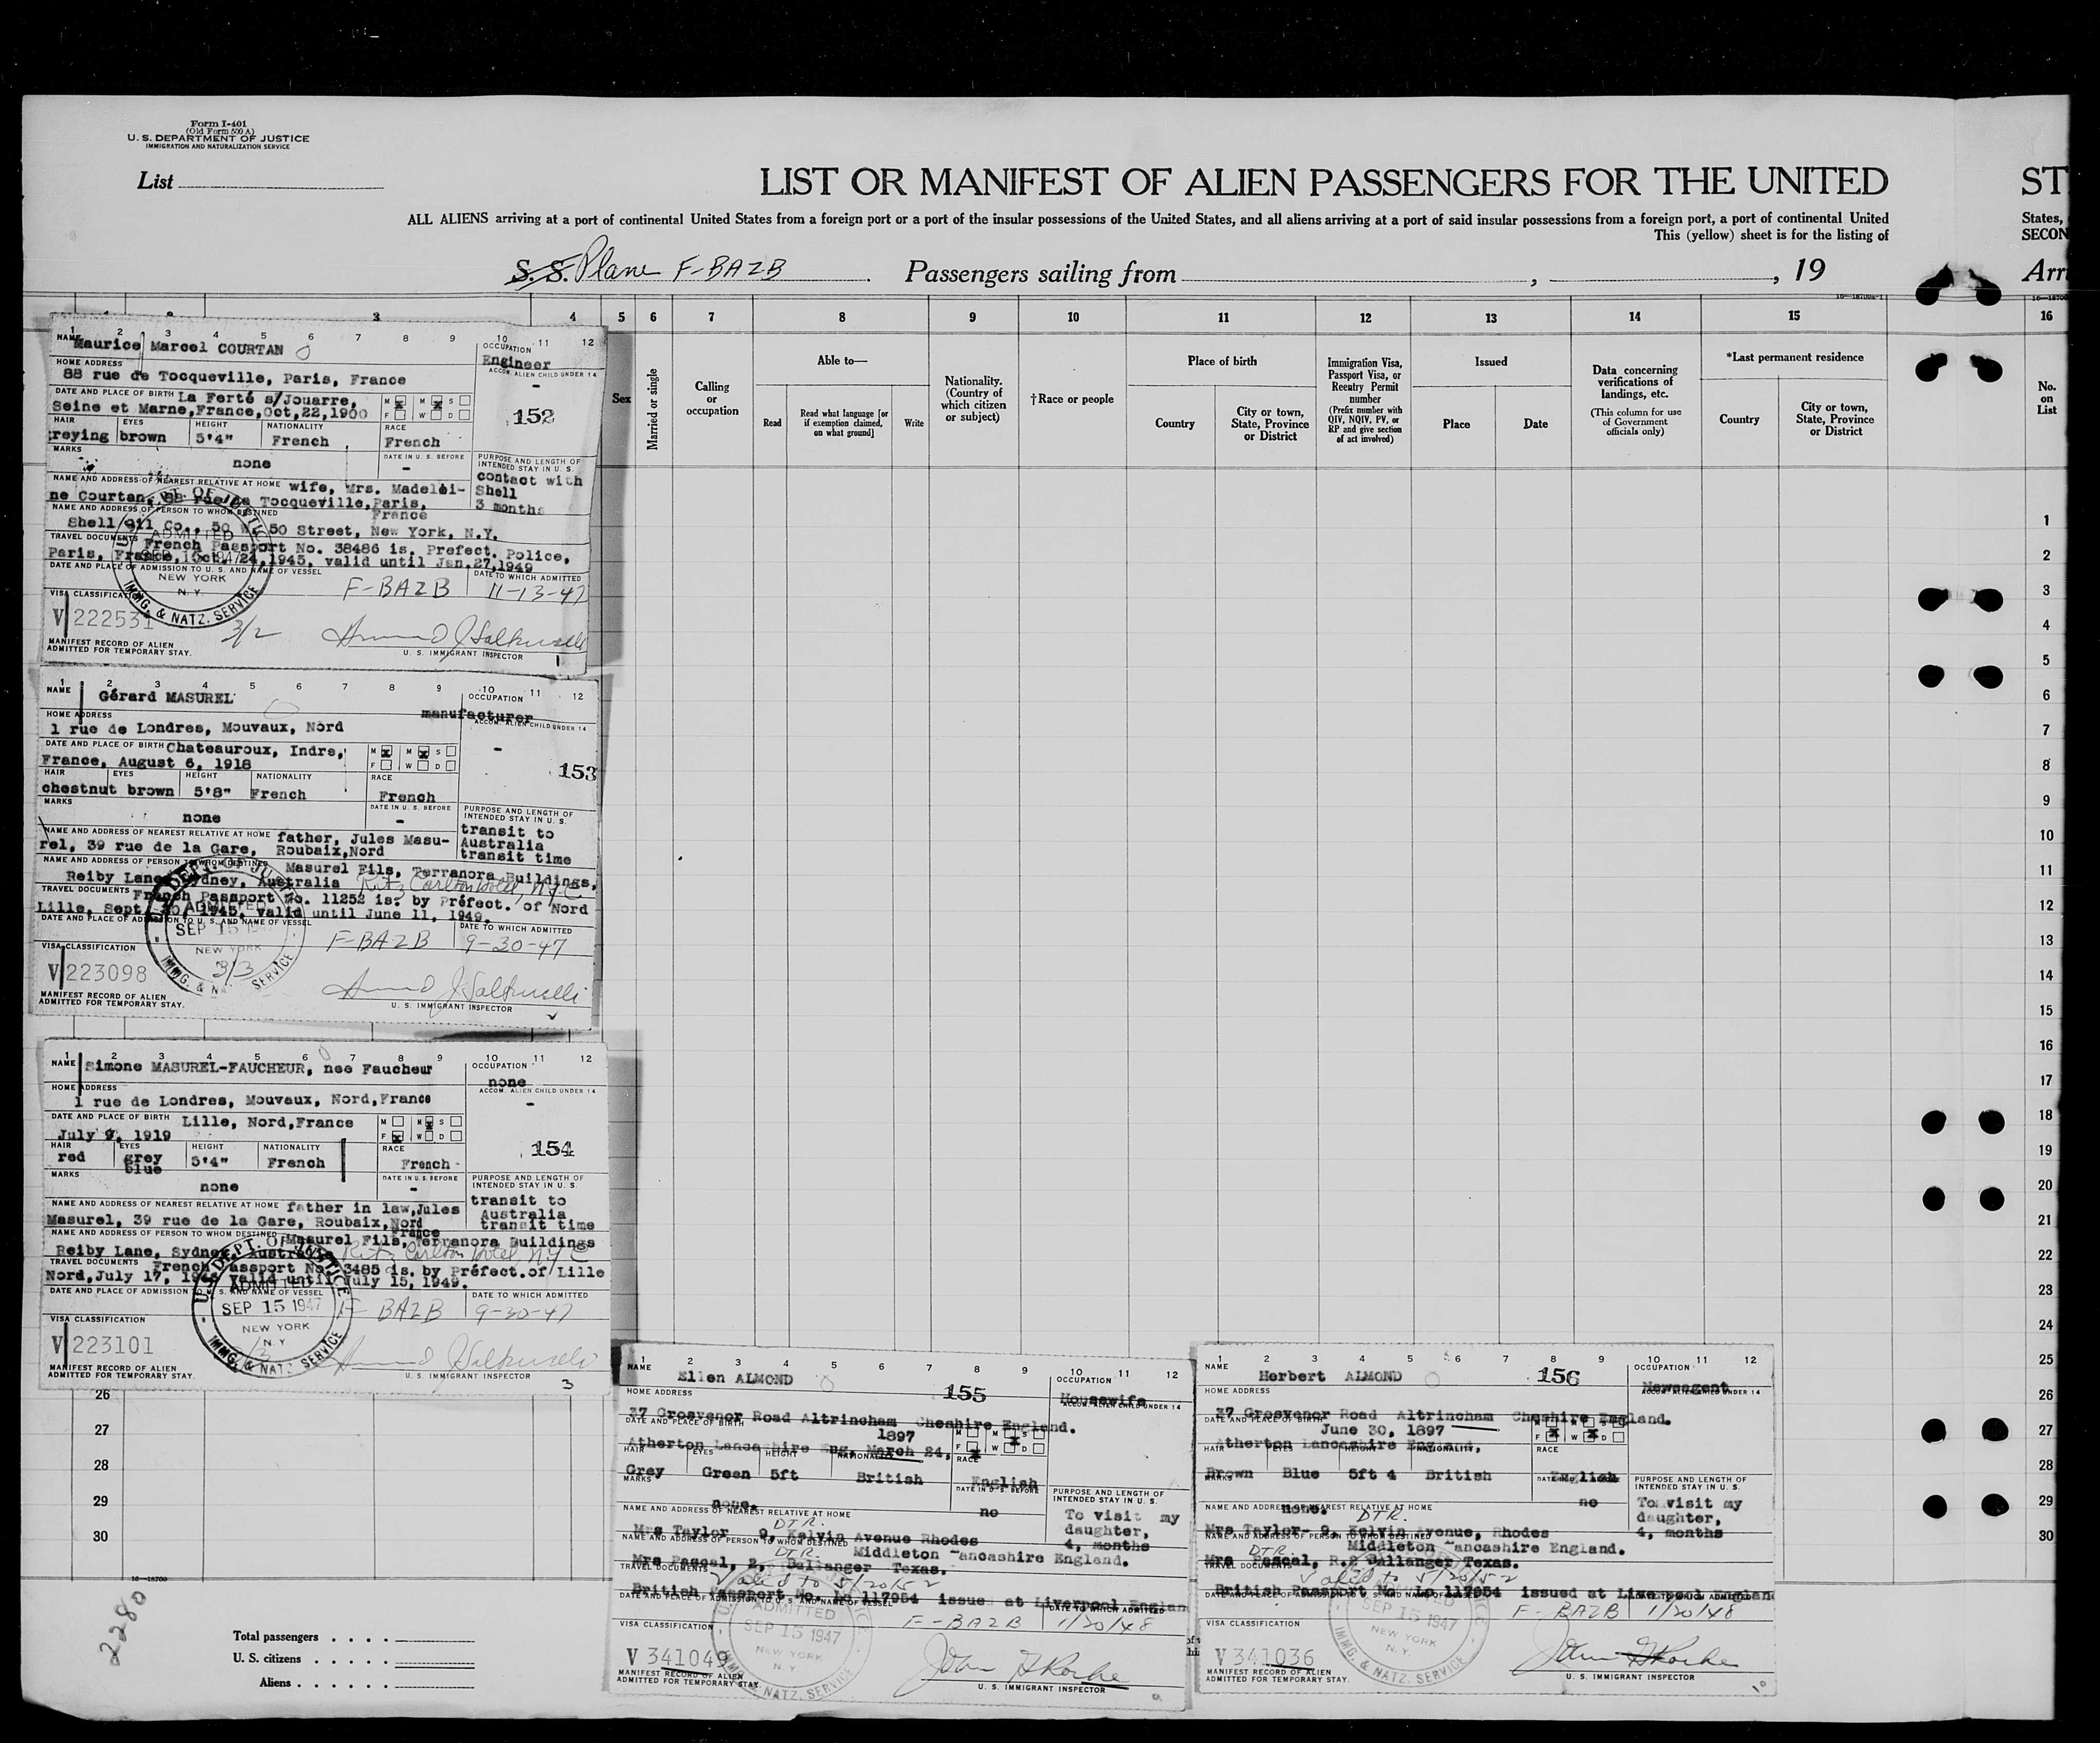 Form I-401
(Old Form 500 A)
U. S. DEPARTMENT OF JUSTICE
IMMIGRATION AND NATURALIZATION SERVICE
List
LIST OR MANIFEST OF ALIEN PASSENGERS FOR THE UNITED
ST
ALL ALIENS arriving at a port of continental United States from a foreign port or a port of the insular possessions of the United States, and all aliens arriving at a port of said insular possessions from a foreign port, a port of continental United
States,
This (yellow) sheet is for the listing of
SECON
S. S. Plane F-BAZB Passengers sailing from , , 19
Arr
3 4 5 6 7 8 9 10 11 12 13 14 15 16
Sex
Married or single
Calling or occupation
Able to—
Read
Read what language [or if exemption claimed, on what ground]
Write
Nationality. (Country of which citizen or subject)
†Race or people
Place of birth
Country
City or town, State, Province or District
Immigration Visa, Passport Visa, or Reentry Permit number
(Prefix number with QIV, NQIV, PV, or RP and give section of act involved)
Issued
Place
Date
Data concerning verifications of landings, etc.
(This column for use of Government officials only)
*Last permanent residence
Country
City or town, State, Province or District
No. on List
1 2 3 4 5 6 7 8 9 10 11 12
NAME Maurice Marcel COURTAN
OCCUPATION Engineer
HOME ADDRESS
88 rue de Tocqueville, Paris, France
ACCOM. ALIEN CHILD UNDER 14
-
DATE AND PLACE OF BIRTH La Ferté s/Jouarre,
Seine et Marne,France,Oct,22,1900
M x M x S
F W D
152
HAIR EYES HEIGHT NATIONALITY RACE
greying brown 5'4" French French
MARKS
none
DATE IN U. S. BEFORE
-
PURPOSE AND LENGTH OF INTENDED STAY IN U. S.
contact with
Shell
3 months
NAME AND ADDRESS OF NEAREST RELATIVE AT HOME wife, Mrs. Madelei-
ne Courtan, 88 rue de Tocqueville,Paris,
France
NAME AND ADDRESS OF PERSON TO WHOM DESTINED
Shell Oil Co., 50 W. 50 Street, New York, N.Y.
TRAVEL DOCUMENTS French Passport No. 38486 is. Prefect. Police,
Paris, France, Oct. 24,1945, valid until Jan.27,1949
DATE AND PLACE OF ADMISSION TO U. S. AND NAME OF VESSEL
F-BAZB
DATE TO WHICH ADMITTED
11-13-47
VISA CLASSIFICATION
V 222531
3/2
MANIFEST RECORD OF ALIEN
ADMITTED FOR TEMPORARY STAY.
U. S. IMMIGRANT INSPECTOR
1
ADMITTED
NEW YORK
N. Y.
IMMG. & NATZ. SERVICE
1 2 3 4 5 6 7 8 9 10 11 12
NAME Gérard MASUREL
OCCUPATION
manufacturer
HOME ADDRESS
1 rue de Londres, Mouvaux, Nord
ACCOM. ALIEN CHILD UNDER 14
-
DATE AND PLACE OF BIRTH Chateauroux, Indre,
France, August 6, 1918
M x M x S
F W D
153
HAIR EYES HEIGHT NATIONALITY RACE
chestnut brown 5'8" French French
MARKS
none
DATE IN U. S. BEFORE
-
PURPOSE AND LENGTH OF INTENDED STAY IN U. S.
transit to
Australia
transit time
NAME AND ADDRESS OF NEAREST RELATIVE AT HOME father, Jules Masu-
rel, 39 rue de la Gare, Roubaix,Nord
NAME AND ADDRESS OF PERSON TO WHOM DESTINED Masurel Fils, Terranora Buildings,
Reiby Lane, Sydney, Australia Ritz Carlton Hotel, NYC
TRAVEL DOCUMENTS French Passport No. 11252 is. by Préfect. of Nord
Lille, Sept. 1945, valid until June 11, 1949.
DATE AND PLACE OF ADMISSION TO U. S. AND NAME OF VESSEL
F-BAZB
DATE TO WHICH ADMITTED
9-30-47
VISA CLASSIFICATION
V 223098
3/3
MANIFEST RECORD OF ALIEN
ADMITTED FOR TEMPORARY STAY.
U. S. IMMIGRANT INSPECTOR
ADMITTED
SEP 15
NEW YORK
1 2 3 4 5 6 7 8 9 10 11 12
NAME Simone MASUREL-FAUCHEUR, nee Faucheur
OCCUPATION
none
HOME ADDRESS
1 rue de Londres, Mouvaux, Nord,France
ACCOM. ALIEN CHILD UNDER 14
-
DATE AND PLACE OF BIRTH Lille, Nord,France
July 9, 1919
M M x S
F x W D
154
HAIR EYES HEIGHT NATIONALITY RACE
red grey blue 5'4" French French
MARKS
none
DATE IN U. S. BEFORE
-
PURPOSE AND LENGTH OF INTENDED STAY IN U. S.
transit to
Australia
transit time
NAME AND ADDRESS OF NEAREST RELATIVE AT HOME father in law,Jules
Masurel, 39 rue de la Gare, Roubaix,Nord
France
NAME AND ADDRESS OF PERSON TO WHOM DESTINED Masurel Fils, Terranora Buildings
Reiby Lane, Sydney, Australia Ritz Carlton Hotel NYC
TRAVEL DOCUMENTS French Passport No. 3485 is. by Préfect.of Lille
Nord,July 17, valid until July 15, 1949.
DATE AND PLACE OF ADMISSION TO U. S. AND NAME OF VESSEL
F-BAZB
DATE TO WHICH ADMITTED
9-30-47
VISA CLASSIFICATION
V 223101
MANIFEST RECORD OF ALIEN
ADMITTED FOR TEMPORARY STAY.
U. S. IMMIGRANT INSPECTOR
3
U. S. DEPT. OF JUSTICE
ADMITTED
SEP 15 1947
NEW YORK
N. Y
IMMG. & NATZ SERVICE
1 2 3 4 5 6 7 8 9 10 11 12
NAME Ellen ALMOND
155
OCCUPATION
Housewife
HOME ADDRESS
ACCOM. ALIEN CHILD UNDER 14
37 Grosvenor Road Altrincham Cheshire England.
DATE AND PLACE OF BIRTH
1897
Atherton Lancashire Eng, March 24,
M M x S
F x W D
HAIR EYES HEIGHT NATIONALITY RACE
Grey Green 5ft British English
MARKS
none.
DATE IN U. S. BEFORE
no
PURPOSE AND LENGTH OF INTENDED STAY IN U. S.
To visit my
daughter,
4, months
NAME AND ADDRESS OF NEAREST RELATIVE AT HOME
DTR.
Mrs Taylor 9, Kelvin Avenue Rhodes
NAME AND ADDRESS OF PERSON TO WHOM DESTINED
DTR. Middleton Lancashire England.
Mrs Pascal, 2, Ballanger Texas.
TRAVEL DOCUMENTS
Valid to 5/20/52
British Passport No. Lo 117954 issued at Liverpool Englan
DATE AND PLACE OF ADMISSION TO U. S. AND NAME OF VESSEL
F-BAZB
DATE TO WHICH ADMITTED
1/20/48
VISA CLASSIFICATION
V 341049
MANIFEST RECORD OF ALIEN
ADMITTED FOR TEMPORARY STAY.
U. S. IMMIGRANT INSPECTOR
ADMITTED
SEP 15 1947
NEW YORK
N. Y.
NATZ. SERVICE
1 2 3 4 5 6 7 8 9 10 11 12
NAME Herbert ALMOND
156
OCCUPATION
Newsagent
HOME ADDRESS
ACCOM. ALIEN CHILD UNDER 14
37 Grosvenor Road Altrincham Cheshire England.
DATE AND PLACE OF BIRTH
June 30, 1897
Atherton Lancashire England,
HAIR EYES HEIGHT NATIONALITY RACE
Brown Blue 5ft 4 British English
MARKS
none.
DATE IN U. S. BEFORE
no
PURPOSE AND LENGTH OF INTENDED STAY IN U. S.
To visit my
daughter,
4, months
NAME AND ADDRESS OF NEAREST RELATIVE AT HOME
DTR.
Mrs Taylor- 9, Kelvin Avenue, Rhodes
NAME AND ADDRESS OF PERSON TO WHOM DESTINED
DTR. Middleton Lancashire England.
Mrs Pascal, R.2 Ballanger Texas.
TRAVEL DOCUMENTS
valid to 5/20/52
British Passport No Lo 117954 issued at Liverpool England
DATE AND PLACE OF ADMISSION TO U. S. AND NAME OF VESSEL
F-BAZB
DATE TO WHICH ADMITTED
1/20/48
VISA CLASSIFICATION
V 341036
MANIFEST RECORD OF ALIEN
ADMITTED FOR TEMPORARY STAY.
U. S. IMMIGRANT INSPECTOR
SEP 15 1947
NEW YORK
N. Y.
IMMG. & NATZ. SERVICE
26
27
28
29
30
1
2
3
4
5
6
7
8
9
10
11
12
13
14
15
16
17
18
19
20
21
22
23
24
25
26
27
28
29
30
16-18700
2280
Total passengers . . . .
U. S. citizens . . . . .
Aliens . . . . . .